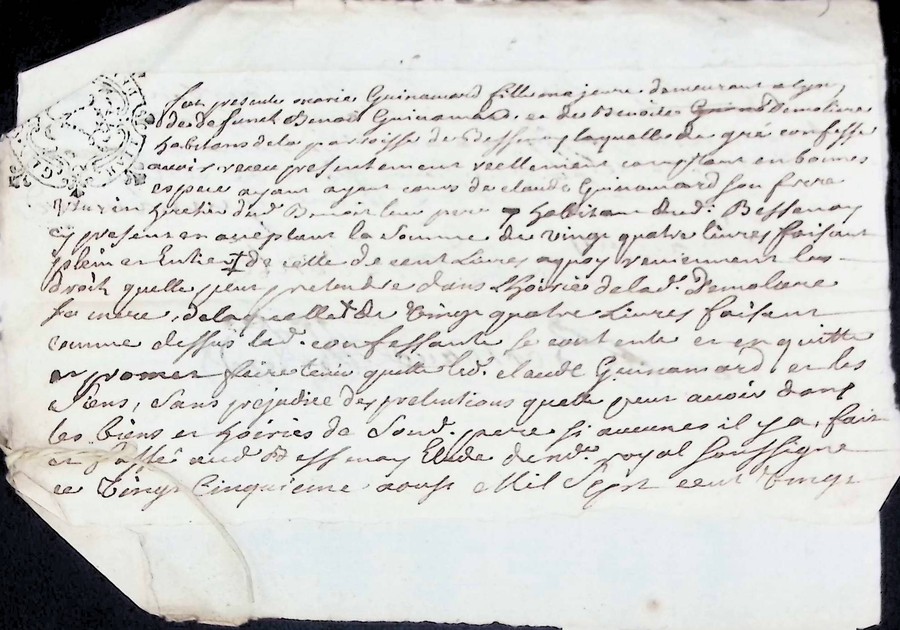 fut presente marie Guinamard fille majeure demeurant a Lyon
de defunct Benoist Guinamard et de Benoite Demoliere
habitans de la paroisse de Bessenay laquelle de gré confesse
avoir receu presentement reellement comptant en bonnes
espece ayant ayant cours de claude Guinamard son frere
heretier dud. Benoist leur pere habitant dud. Bessenay
cy present et acceptant la somme de vingt quatre livres faisant
plein et Entier de celle de cent Livres a quoy reviennent les
droits quelle peut pretendre dans Lhoirie de lad. Demoliere
sa mere, de laquelle de vingt quatre Livres faisant
comme dessus lad. confessante se contente et en quitte
et promet faire tenir quitte led. claude Guinamard et les
siens, sans prejudice des pretentions quelle peut avoir dans
les biens et hoiries de Sond. pere si aucunes il y a, fait
et passé aud Bessenay Etude du no.re royal soussigne
ce vingt cinquieme aoust Mil Sept cent vingt